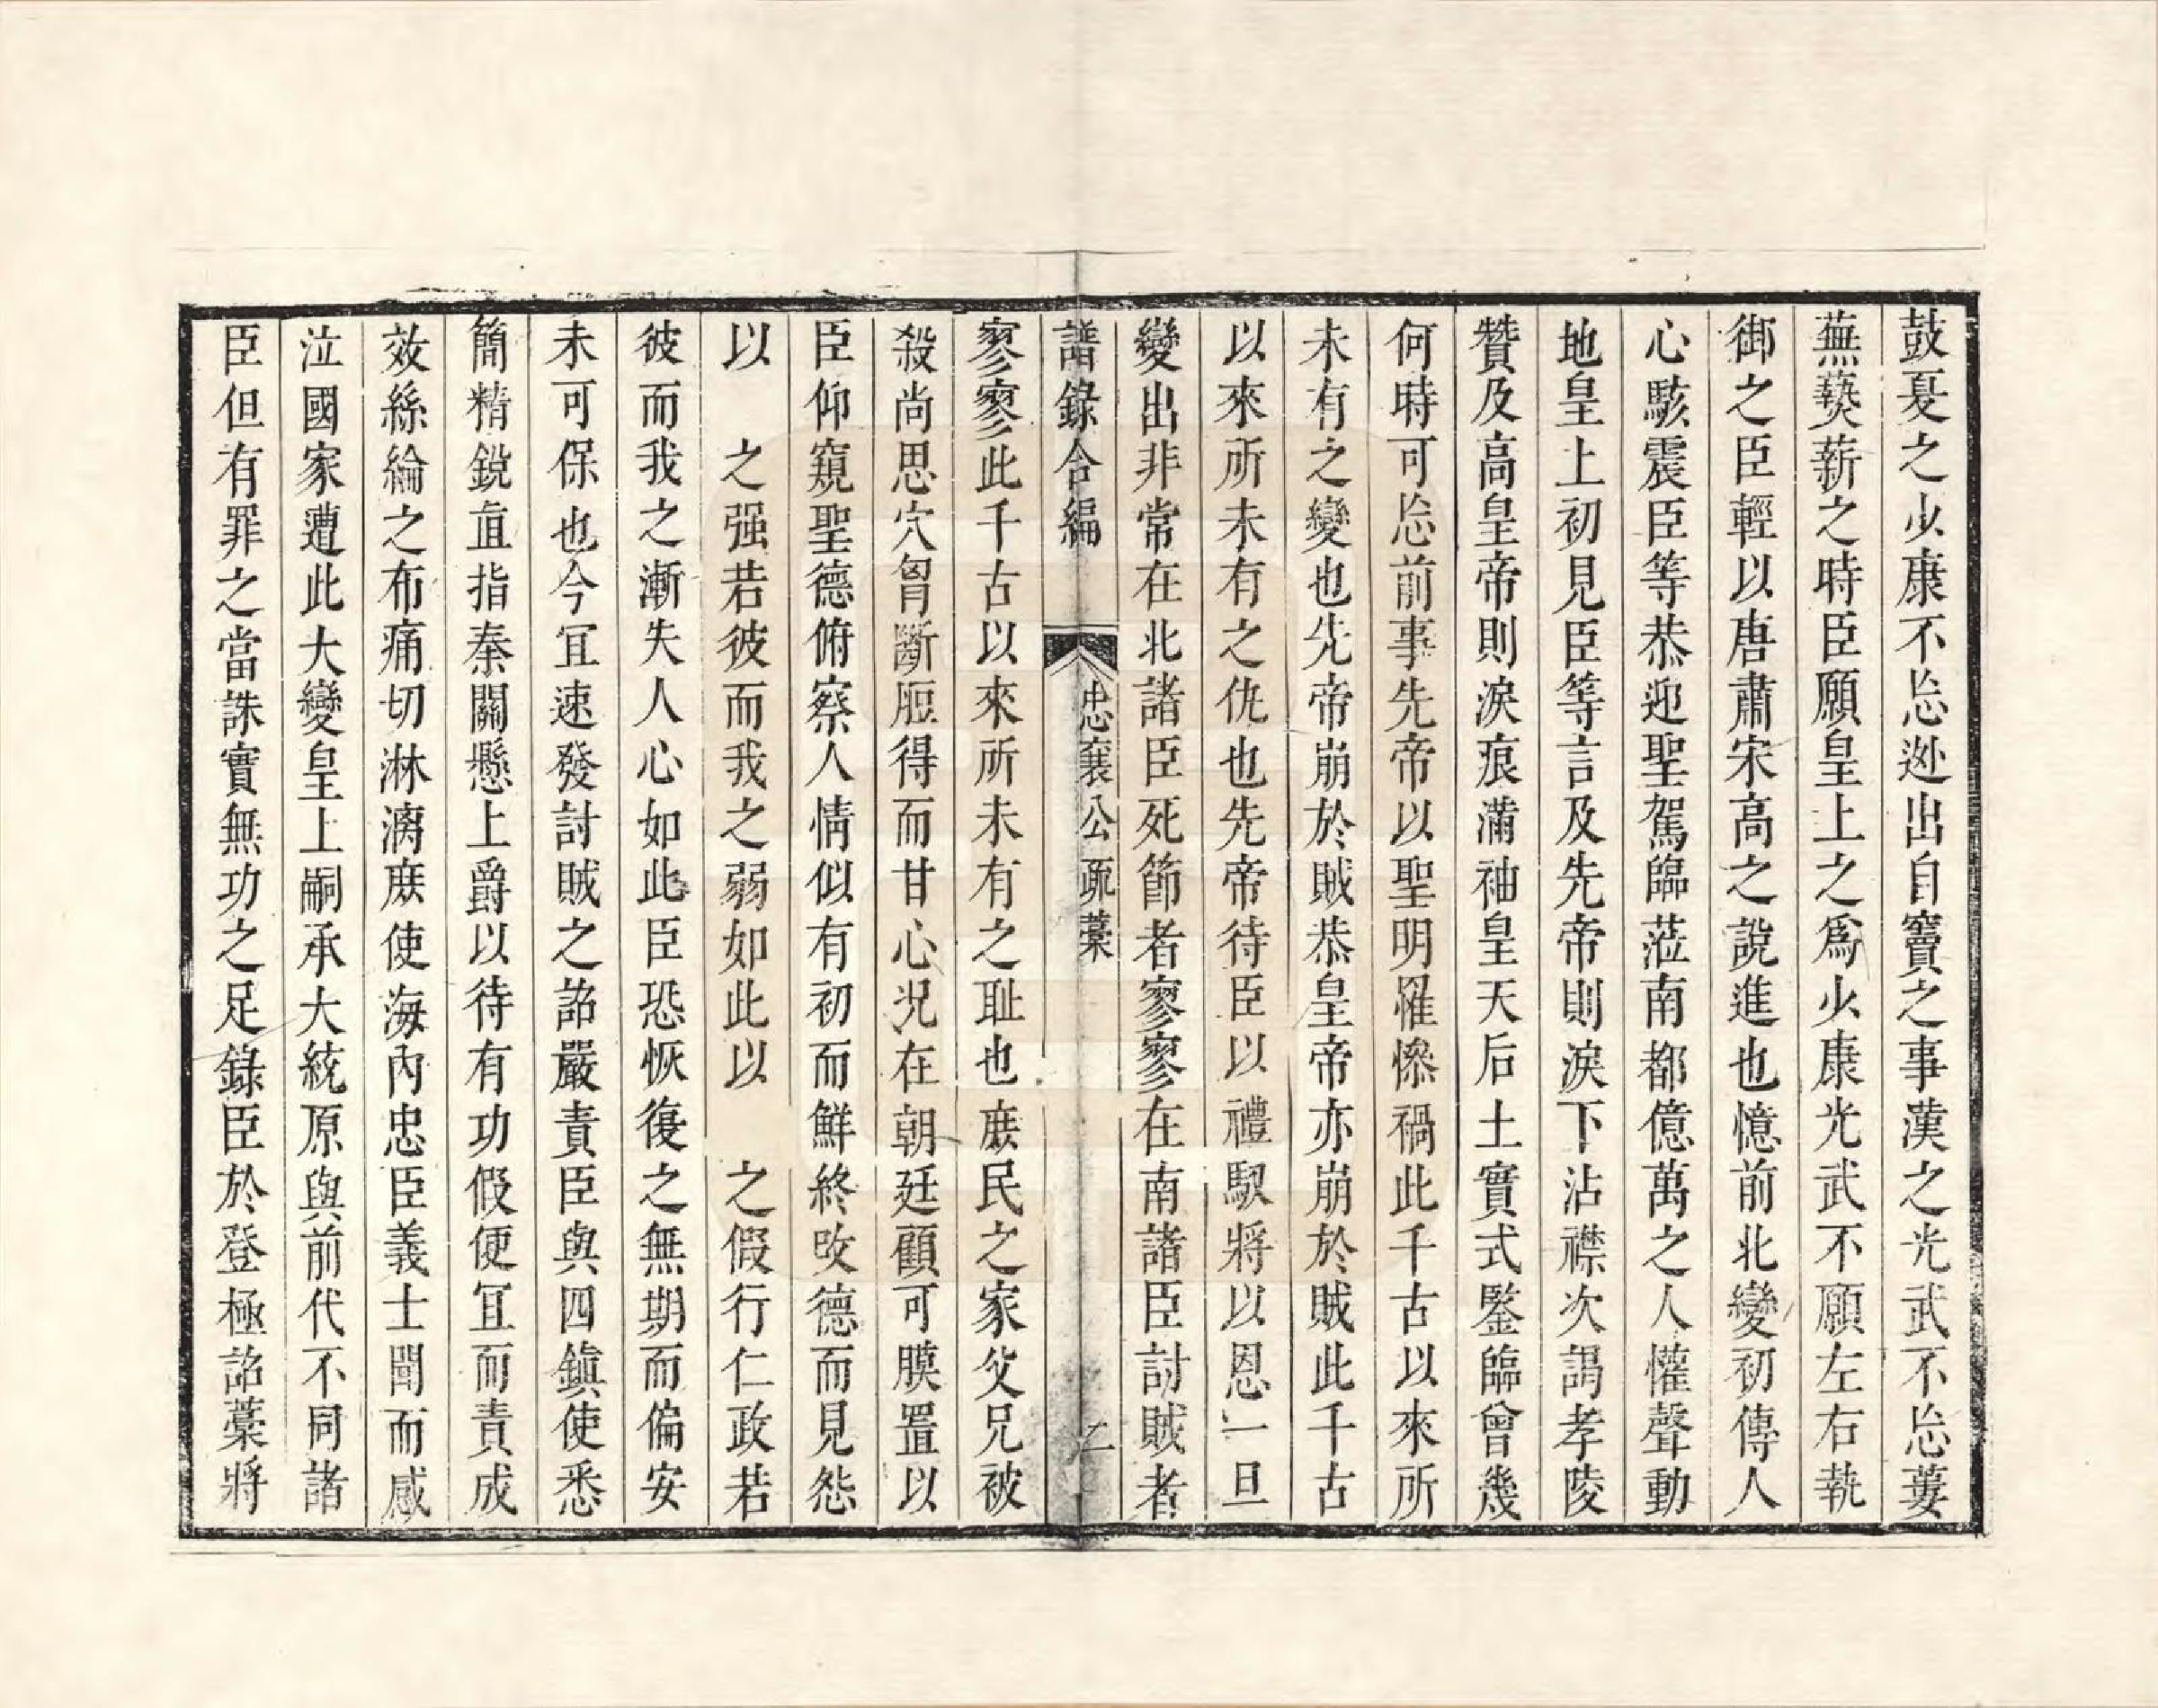 鼓夏之少康不忘逃出自竇之事漢之光武不忘蔞
蕪爇薪之時臣願皇上之爲少康光武不願左右執
御之臣輕以唐肅宋高之說進也憶前北變初傳人
心駭震臣等恭迎聖駕臨蒞南都億萬之人懽聲動
地皇上初見臣等言及先帝則淚下沾襟次謁孝陵
贊及高皇帝則淚痕滿袖皇天后土實式鑒臨曾幾
何時可忘前事先帝以聖明罹慘禍此千古以來所
未有之變也先帝崩於賊恭皇帝亦崩於賊此千古
以來所未有之仇也先帝待臣以禮馭將以恩一旦
變出非常在北諸臣死節者寥寥在南諸臣討賊者
譜錄合編 忠襄公疏藁 乙
寥寥此千古以來所未有之耻也庶民之家父兄被
殺尚思穴胷斷脰得而甘心况在朝廷顧可膜置以
臣仰窺聖德俯察人情似有初而鮮終攺德而見怨
以 之强若彼而我之弱如此以 之假行仁政若
彼而我之漸失人心如此臣恐恢復之無期而偏安
未可保也今宜速發討賊之詔嚴責臣與四鎮使悉
簡精銳直指秦關懸上爵以待有功假便宜而責成
效絲綸之布痛切淋漓庶使海內忠臣義士聞而感
泣國家遭此大變皇上嗣承大統原與前代不同諸
臣但有罪之當誅實無功之足錄臣於登極詔藁將